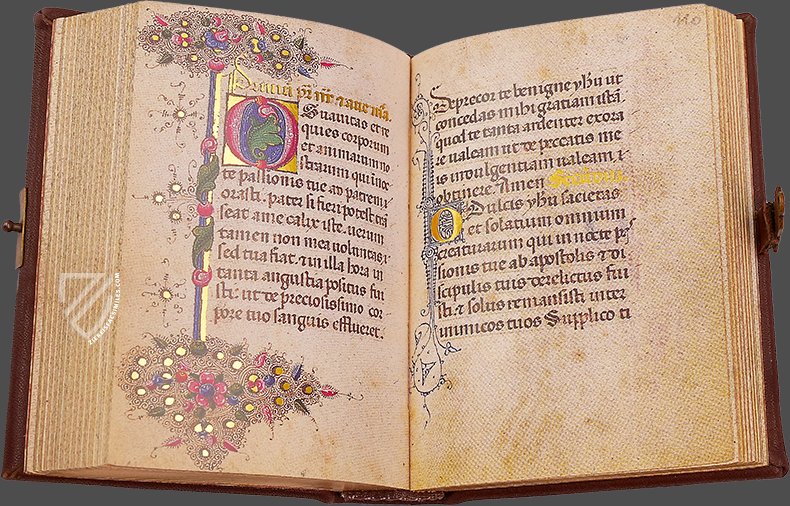 Suavitas et re
quies corporum
et animarum no
strarum qui i noc
te passionis tue ad patrem
orasti. pater si fieri potest tra
seat a me calix iste. verum
tamen non mea voluntas,
sed tua fiat. et in illa hora in
tanta angustia positus fui
sti. ut de preciosissimo cor
pore tuo sanguis efflueret.
110
Deprecor te benigne yhu ut
concedas mihi gratiam istā.
quod te tanta ardenter exora
re valeam ut de peccatis me
is indulgentiam valeam,
obtinere. Amen
O Dulcis yhu societas
et solatium omnium
creaturarum qui in nocte pas
sionis tue ab apostolis et di
scipulis tuis derelictus fui
sti. et solus remansisti inter
inimicos tuos Supplico ti
ZIEREISFACSIMILES.COM